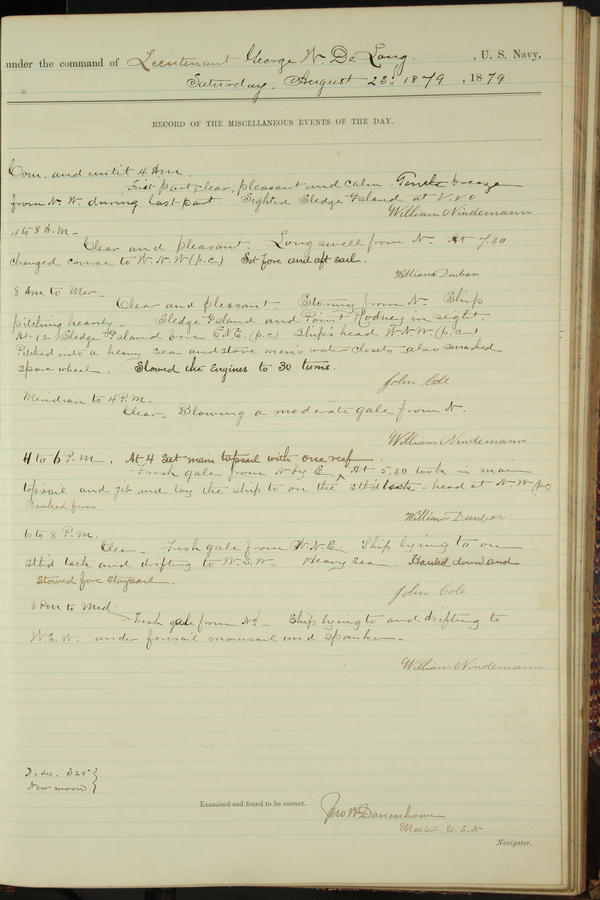 under the command of Lieutenant George W De Long, U. S. Navy,
Saturday, August 23d 1879, 1879
RECORD OF THE MISCELLANEOUS EVENTS OF THE DAY.
Com. and until 4 Am.
First part clear, pleasant and calm. Gentle breeze
from N. W. during last part Sighted Sledge Island at
William Nindemann
4 to 8 A.M.
Clear and pleasant. Long swell from N. At 7.30
changed course to W.N.W (p.c.) Set fore and aft sail.
William Dunbar
8 Am to Mer
Clear and pleasant. from N. Ship
pitching heavily Sledge Island and Point Rodney in sight.
At 12 Sledge Island bore E.N.E. (p.c.) Ship's head W.N.W. (p.c.)
Pitched into a heavy sea and stove mens water closets also smashed
spare wheel. Slowed the Engines to 30 turns.
John Cole
Meridian to 4 P.M.
Clear. Blowing a moderate gale from N.
William Nindemann
4 to 6 P.M. At 4 set main topsail with one reef
Fresh gale from N by E ^ At 5.30 took in main
topsail and jib and lay the ship to on the stb'd tack - head at N.W (p.c)
Banked fires
William Dunbar
6 to 8 P.M.
Clear Fresh gale from N.N.E. Ship lying to on
stb'd tack and drifting to W.S.W. Heavy sea. Hauled down and
stowed fore staysail.
John Cole
8 Pm to Mid.
Fresh gale from Nd Ship lying to and drifting to
under foresail mainsail and spanker.
William Nindemann
New moon
Examined and found to be correct.
Jno W Danenhower
Master U.S.N.
Navigator.